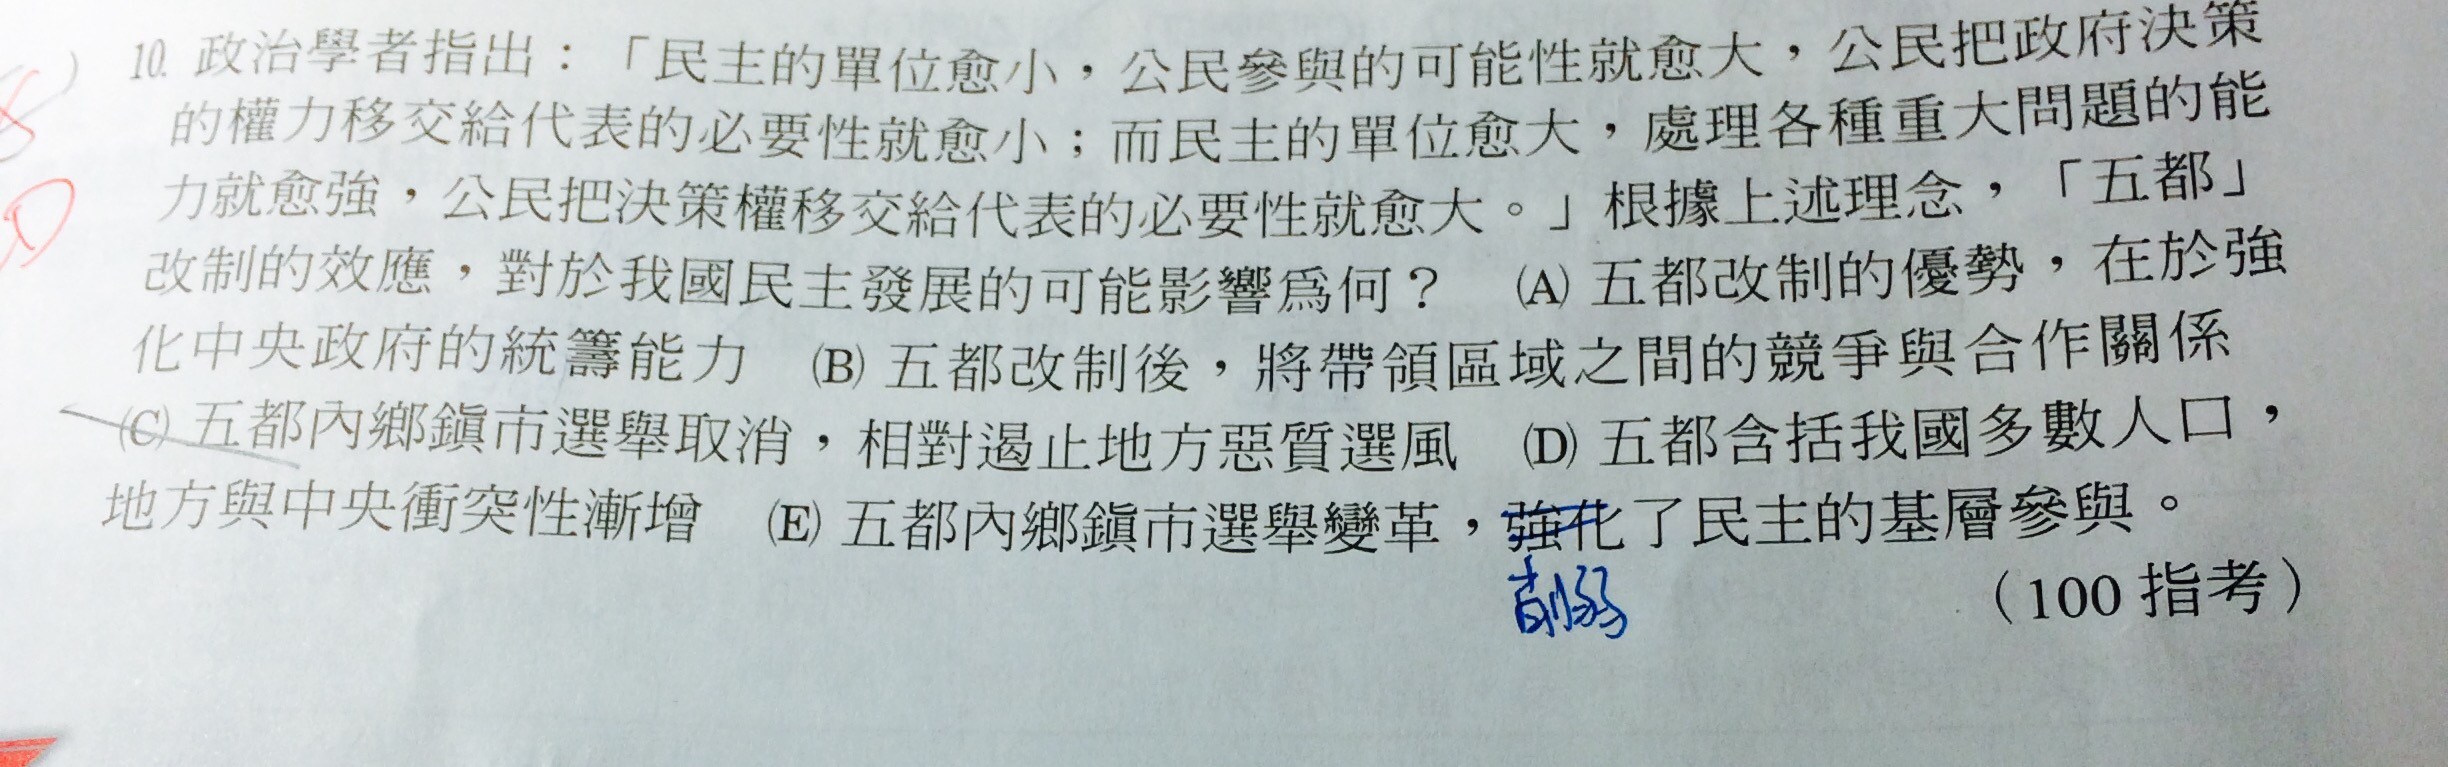 ) 10. 政治學者指出：「民主的單位愈小，公民參與的可能性就愈大，公民把政府決策
的權力移交給代表的必要性就愈小；而民主的單位愈大，處理各種重大問題的能
力就愈強，公民把決策權移交給代表的必要性就愈大。」根據上述理念，「五都」
改制的效應，對於我國民主發展的可能影響爲何？ (A) 五都改制的優勢，在於強
化中央政府的統籌能力 (B) 五都改制後，將帶領區域之間的競爭與合作關係
(C) 五都內鄉鎮市選舉取消，相對遏止地方惡質選風 (D) 五都含括我國多數人口，
地方與中央衝突性漸增 (E) 五都內鄉鎮市選舉變革，強化了民主的基層參與。
削弱
（100 指考）
D